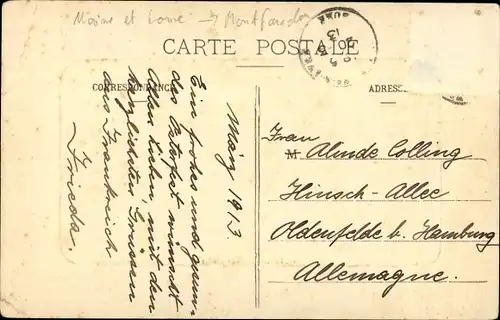 Maine et Loire → Montfaucon
CARTE POSTALE
CORRESPONDANCE
ADRESSE
März 1913.
Ein frohes und gesun-
des Osterfest wünscht
Allen Lieben, mit den
herzlichsten Grüssen
aus Frankreich
Frieda.
Frau
M Alinde Colling
Hinsch-Allee
Oldenfelde b. Hamburg
Allemagne.